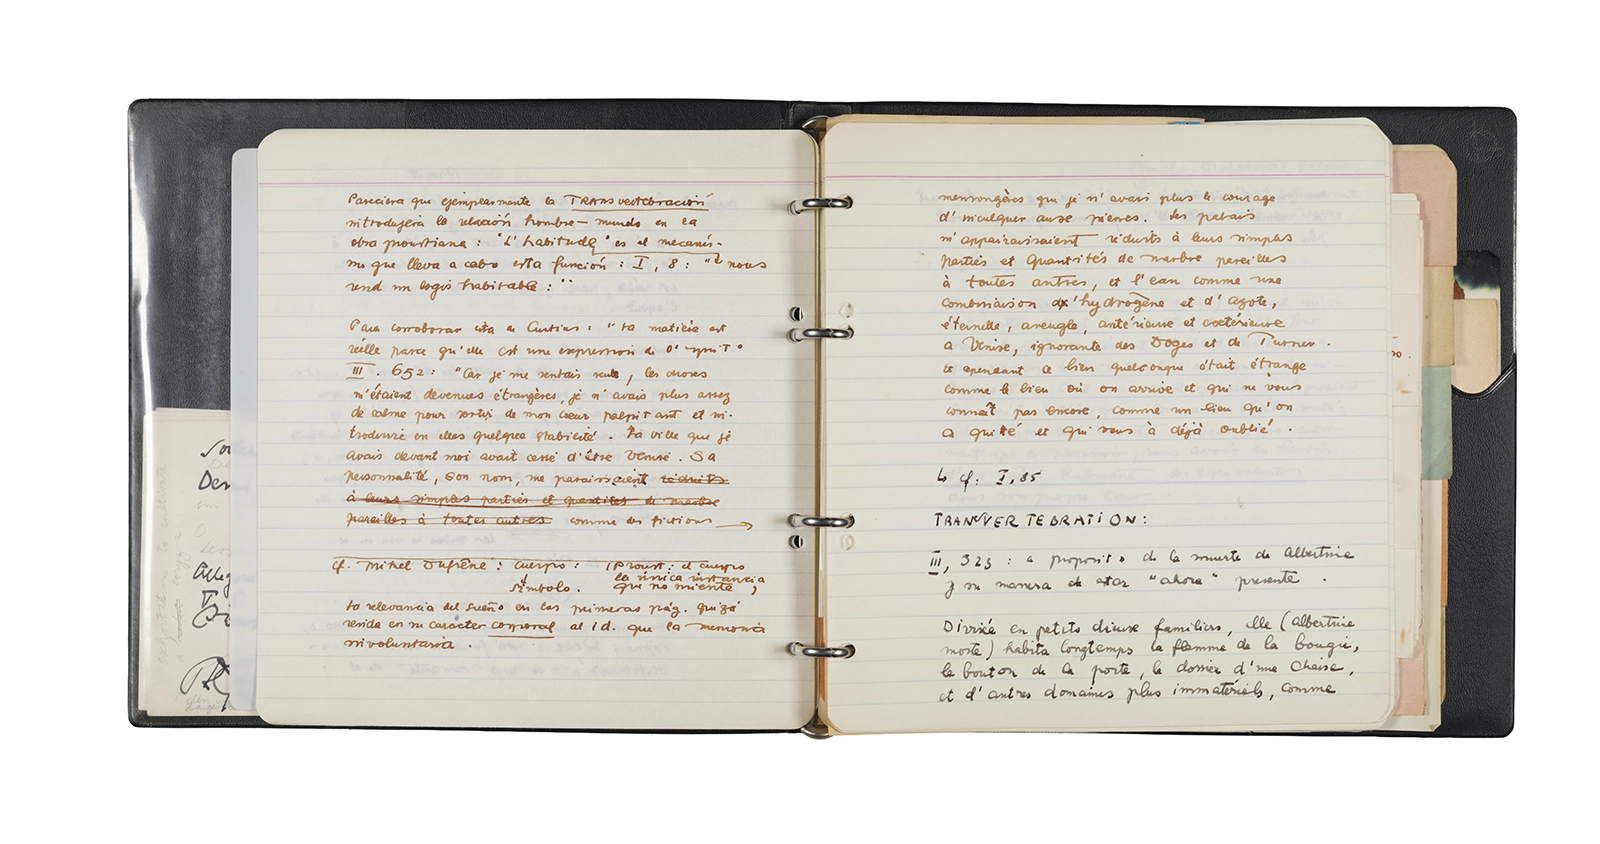 Pareciera que ejemplarmente la TRANSVERTEBRACIÓN
introdujera la relación hombre - mundo en la
obra proustiana: "L'habitude" es el mecanis-
mo que lleva a cabo esta función: I, 8: " nous
rend un logis habitable: "
Para corroborar esta de Curtius: "La matière est
réelle parce qu'elle est une expression de l'esprit"
III. 652: "Car je me sentais seule, les choses
m'étaient devenues étrangères, je n'avais plus assez
de calme pour sortir de mon cœur palpitant et in-
troduire en elles quelque stabilité. La ville que je
avais devant moi avait cessé d'être Venise. Sa
personnalité, son nom, me paraissaient réduits
à leurs simples parties et quantités de marbre
pareilles à toutes autres comme des fictions →
cf. Mikel Dufrène: cuerpo: (Proust: el cuerpo
símbolo. la única instancia
que no miente,
La relevancia del sueño en las primeras pág. quizá
resida en su carácter corporal al id. que la memoria
involuntaria.
mensongères que je n'avais plus le courage
d'inculquer aux pierres. Les palais
m'apparaissaient réduits à leurs simples
parties et quantités de marbre pareilles
à toutes autres, et l'eau comme une
combinaison d'hydrogène et d'azote,
éternelle, aveugle, antérieure et extérieure
a Venise, ignorante des Doges et de Turner.
Et cependant ce lieu quelconque était étrange
comme le lieu où on arrive et qui ne vous
connaît pas encore, comme un lieu qu'on
a quitté et qui vous à déjà oublié.
↳ cf: I, 85
TRANSVERTEBRATION:
III, 323: a proposito de la muerte de Albertine
y su manera de estar "ahora" presente.
Divisée en petits dieux familiers, elle (Albertine
morte) habita longtemps la flamme de la bougie,
le bouton de la porte, le dossier d'une chaise,
et d'autres domaines plus immatériels, comme